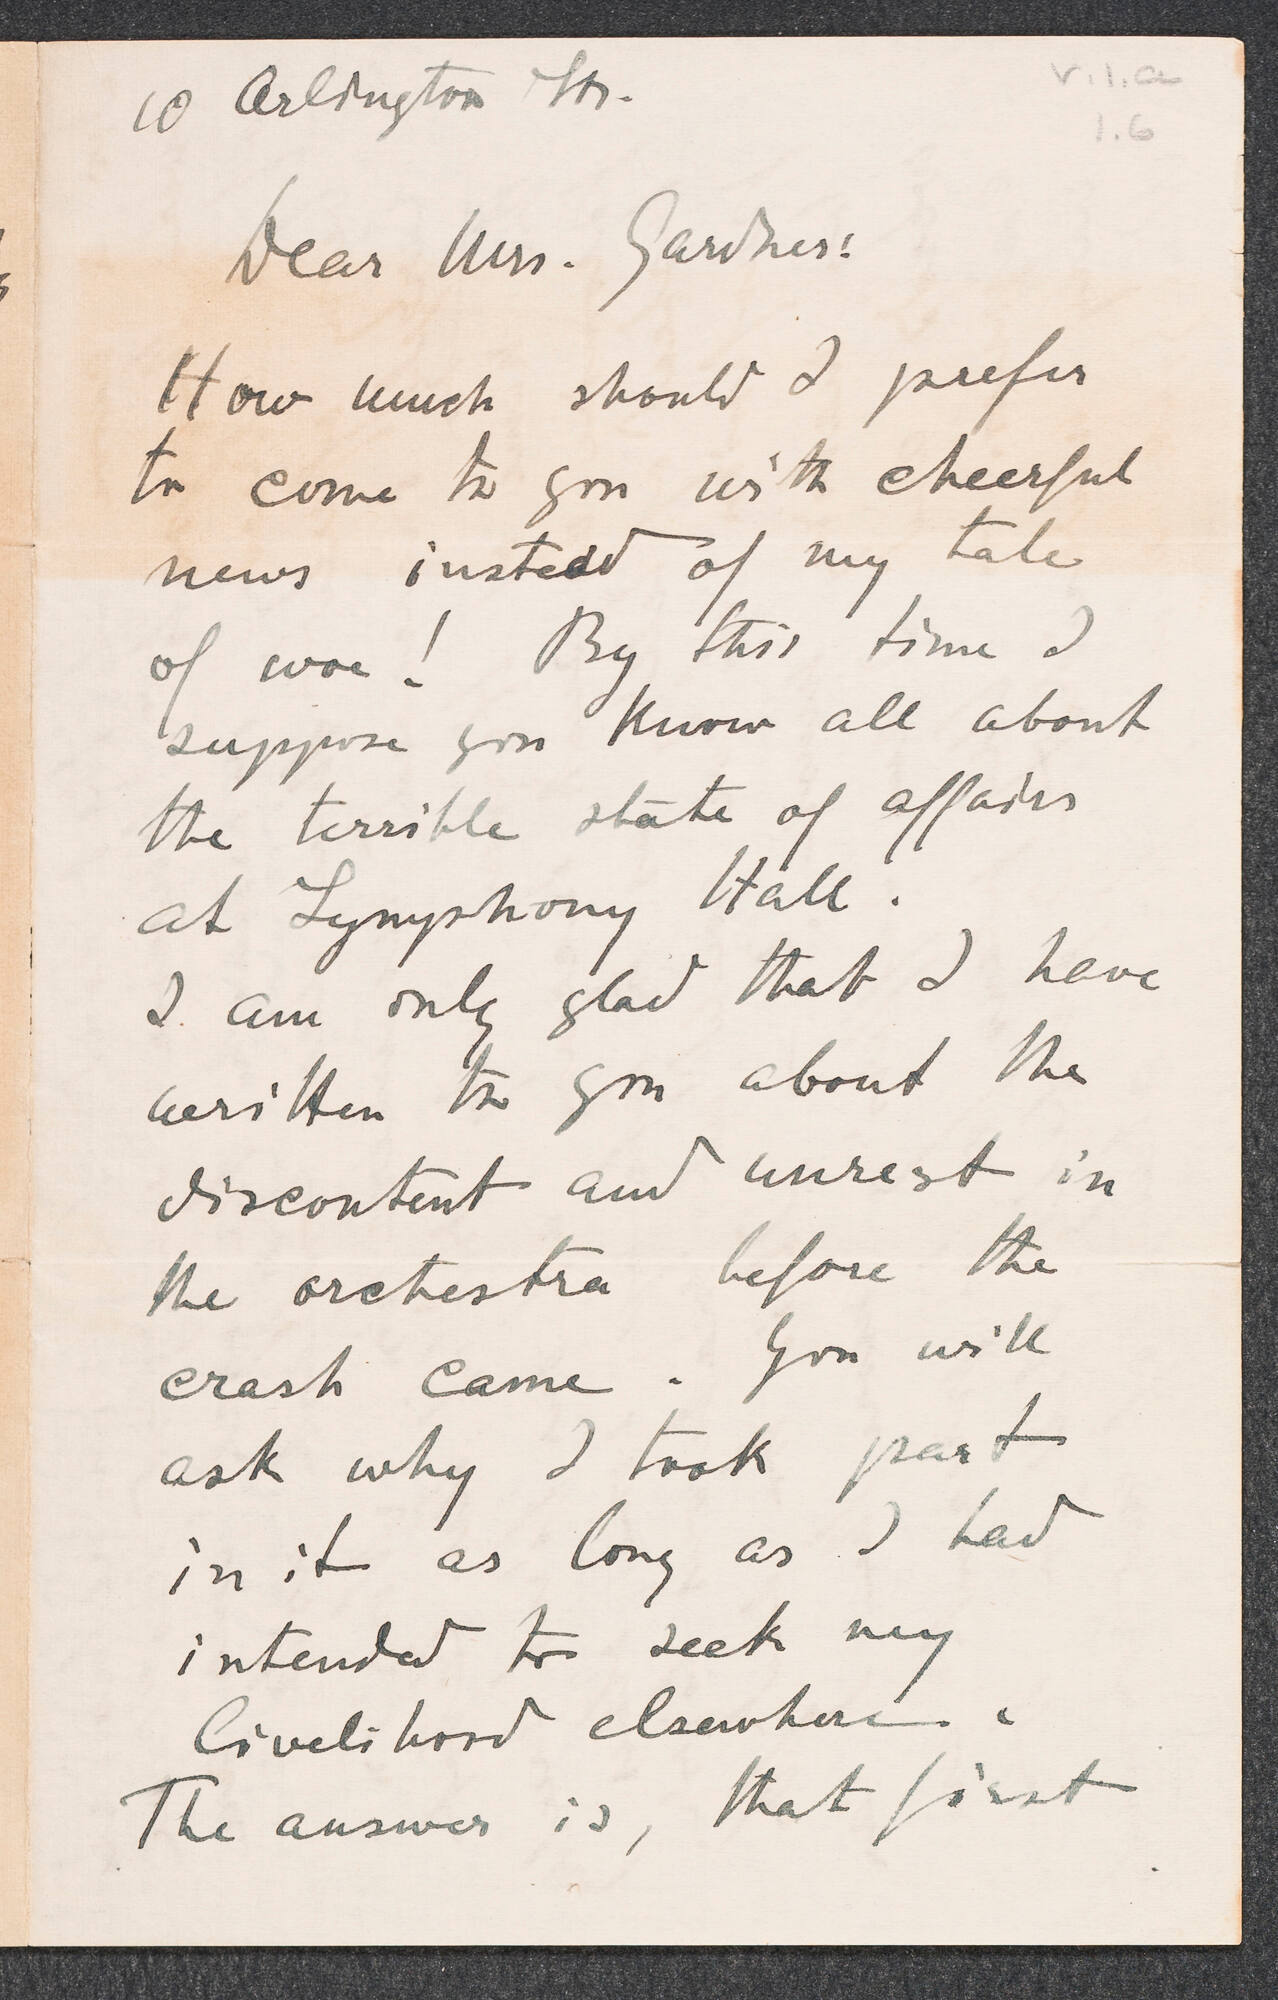 v.1.a
1.6
10 Arlington Str.
Dear Mrs. Gardner:
How much should I prefer
to come to you with cheerful
news instead of my tale
of woe! By this time I
suppose you know all about
the terrible state of affairs
at Symphony Hall.
I am only glad that I have
written to you about the
discontent and unrest in
the orchestra before the
crash came. You will
ask why I took part
in it as long as I had
intended to seek my
livelihood elsewhere.
The answer is, that first